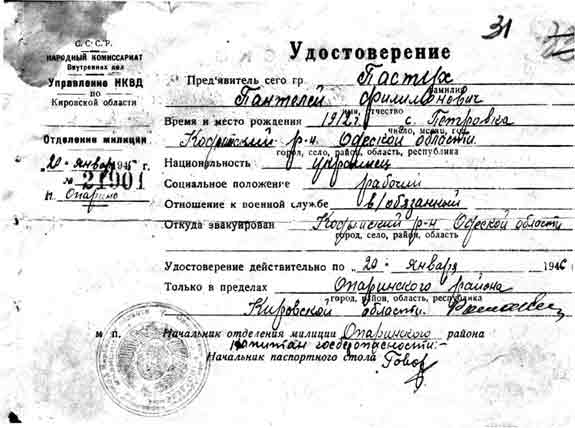 31
С.С.С.Р.
НАРОДНЫЙ КОМИССАРИАТ
Внутренних дел
Управление НКВД
по
Кировской области
Отделение милиции
"20" января 1945 г.
№ 21901
п. Опарино
Удостоверение
Пред'явитель сего гр. Пастух
фамилия
Пантелей Филимонович
имя, отчество
Время и место рождения 1912 г. с. Петровка
число, месяц, год
Кодымский р-н Одеской области
город, село, район, область, республика
Национальность украинец
Социальное положение рабочий
Отношение к военной службе в/обязанный
Откуда эвакуирован Кодымский р-н Одеской области
город, село, район, область
Удостоверение действительно по "20" января 1946
Только в пределах Опаринского района
город, район, область, республика
Кировской области.
м п. Начальник отделения милиции Опаринского района
капитан госбезопасности:-
Начальник паспортного стола